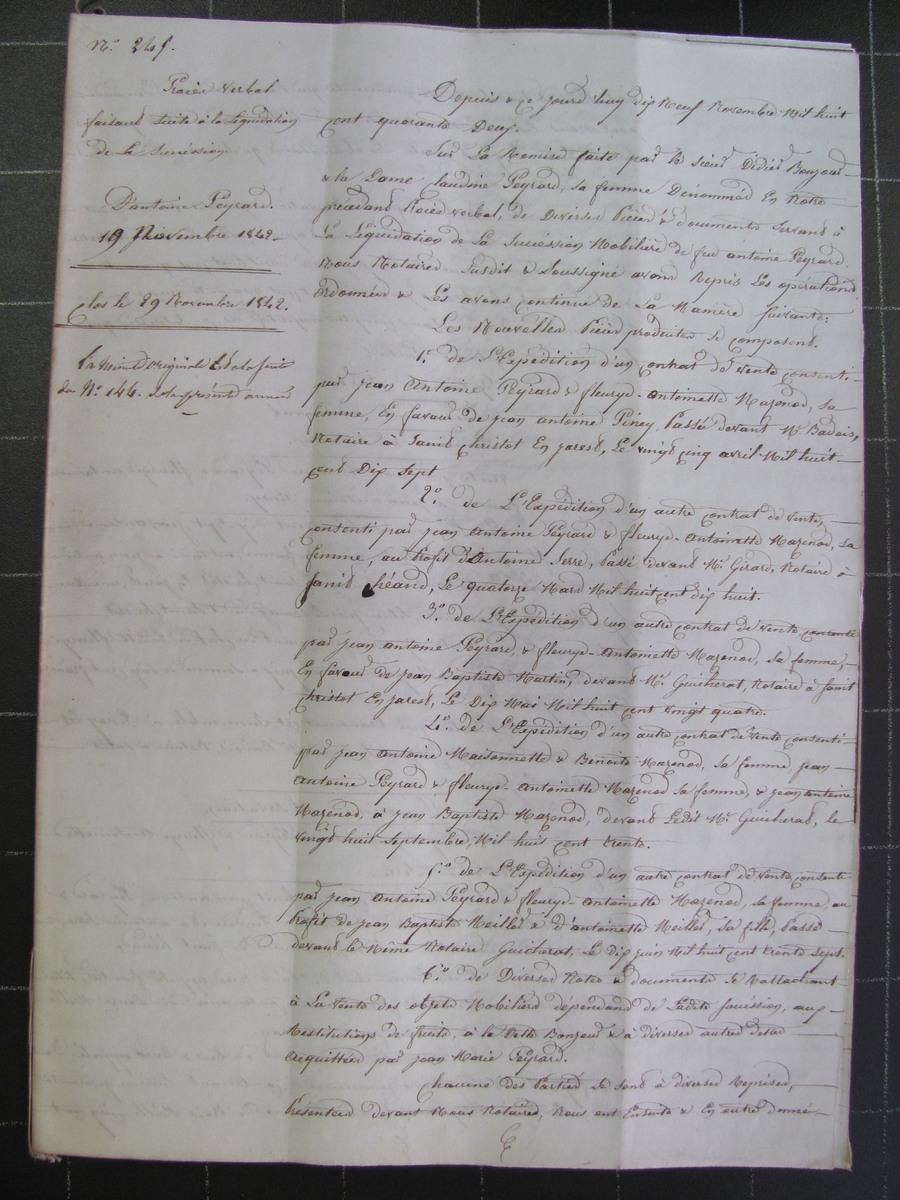 N.º 245.
Procès verbal
faisant suite à la Liquidation
de la Succession
D'antoine Peyrard.
19 Novembre 1842.
clos le 29 Novembre 1842.
La minute originale Est à la suite
du Nº 144. de la présente année
Depuis & ce jourd'huy dix Neuf Novembre Mil huit
cent quarante Deux.
Sur La Remise faite par le sieur Didier Bonjour
& la Dame Claudine Peyrard, sa femme Dénommés En Notre
précédant Procès verbal, de Diverses Pièces & documents servant à
La Liquidation de La Succession Mobilière de feu antoine Peyrard
Nous Notaires Susdit & Soussigné avons Repris Les opérations
ordonnées & Les avons continué de La Manière suivante:
Les Nouvelles Pièces produites se composent.
1º. de L'Expédition d'un contrat de vente consenti
par jean Antoine Peyrard & fleurye-Antoinette Mazenod, sa
femme, En faveur de jean antoine Piney, Passé devant Mº. Badois,
Notaire à Saint Christot En jarest, Le vingt cinq avril Mil huit
cent Dix sept
2º. de L'Expédition d'un autre contrat de vente,
consenti par jean Antoine Peyrard & fleurye-Antoinette Mazenod, sa
femme, au Profit d'Antoine Serre, Passé devant Mº. Girard, Notaire à
Saint héand, Le quatorze Mars Mil huit cent dix huit.
3º. de L'Expédition d'un autre contrat de vente consenti
par jean antoine Peyrard, & fleurye-Antoinette Mazenod, sa femme,
En faveur de jean Baptiste Martin, devant Mº. Guicherat, Notaire à Saint
Christot En jarest, Le Dix Mai Mil huit cent vingt quatre.
4º. de L'Expédition d'un autre contrat de vente consenti
par jean Antoine Maisonnette & Benoite Mazenod, sa femme, jean
Antoine Peyrard & fleurye-Antoinette Mazenod sa femme, & jean antoine
Mazenod, à jean Baptiste Mazenod, devant Ledit Mº. Guicherat, le
vingt huit Septembre, Mil huit cent trente.
5º. de L'Expédition d'un autre contrat de vente consenti
par jean Antoine Peyrard & fleurye-Antoinette Mazenod, sa femme, au
Profit de jean Baptiste Meiller & d'antoinette Meiller, sa fille, Passé
devant le Même Notaire Guicherat, Le dix juin Mil huit cent trente sept.
6º. de Diverses Notes & documents se Rattachant
à La vente des objets Mobiliers dépendant de Ladite succession, aux
Restitutions de fruits, à la Dette Bonjour & à diverses autres dettes
acquittées par jean Marie Peyrard.
Chacune des Parties se sont à diverses Reprises,
Présentées devant Nous Notaires, Nous ont Ensuite & En outre donné